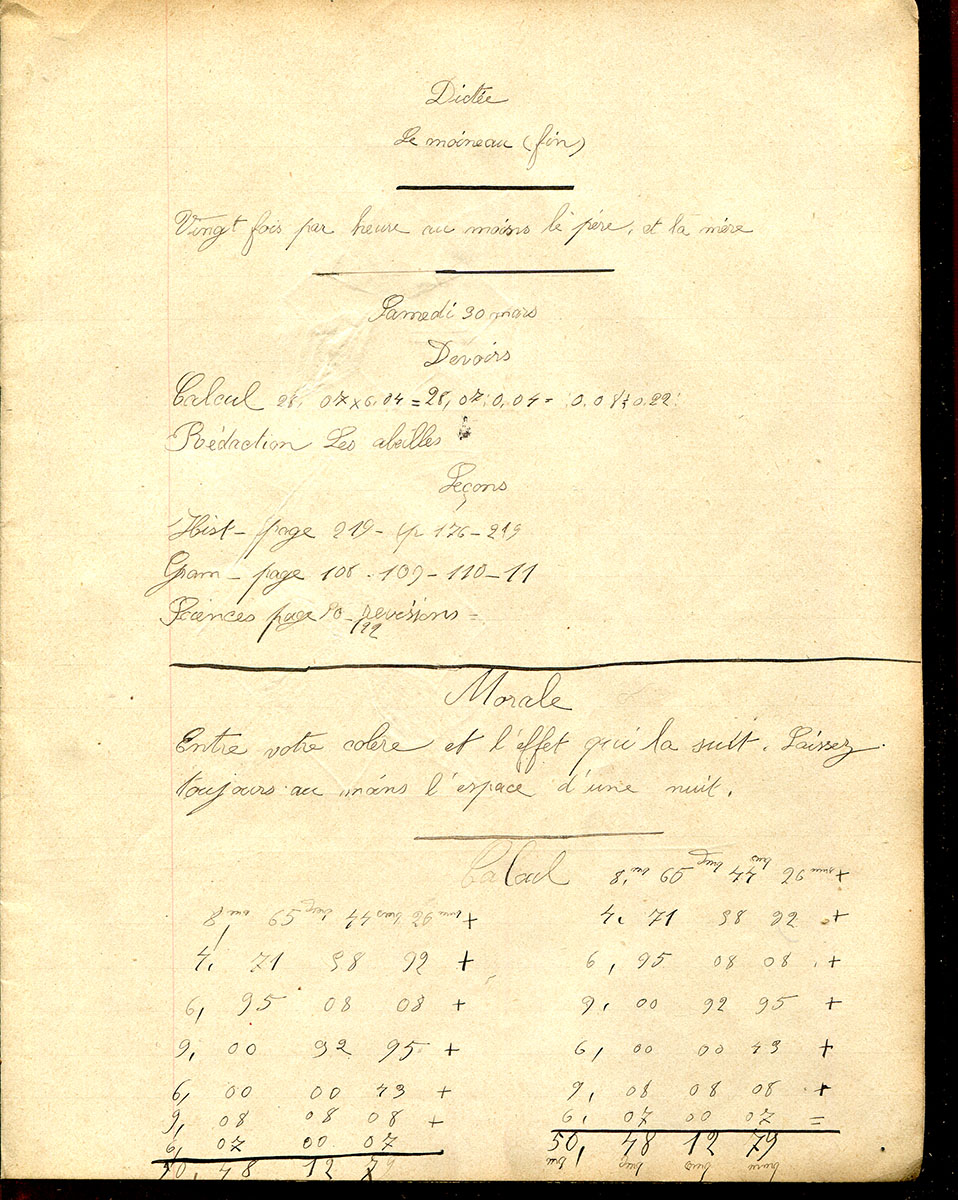 Dictée
Le moineau (fin)
Vingt fois par heure au moins le père, et la mère
Samedi 30 mars
Devoirs
Calcul 28, 07 x 6,04 = 28, 07 : 0,04 =
Rédaction Les abeilles
Leçons
Hist - page 219 - 176 - 219
Gram - page 108 - 109 - 110 - 11
Sciences page revisions =
Morale
Entre votre colère et l'effet qui la suit. Laissez
toujours au moins l'espace d'une nuit.
Calcul 8, 65 44 26 +
8, 65 44 26 + 4, 71 38 92 +
4, 71 38 92 + 6, 95 08 08 +
6, 95 08 08 + 9, 00 92 95 +
9, 00 92 95 + 6, 00 00 43 +
6, 00 00 43 + 9, 08 08 08 +
9, 08 08 08 + 6, 07 00 07 =
6, 07 00 07 50, 48 12 79
50, 48 12 79